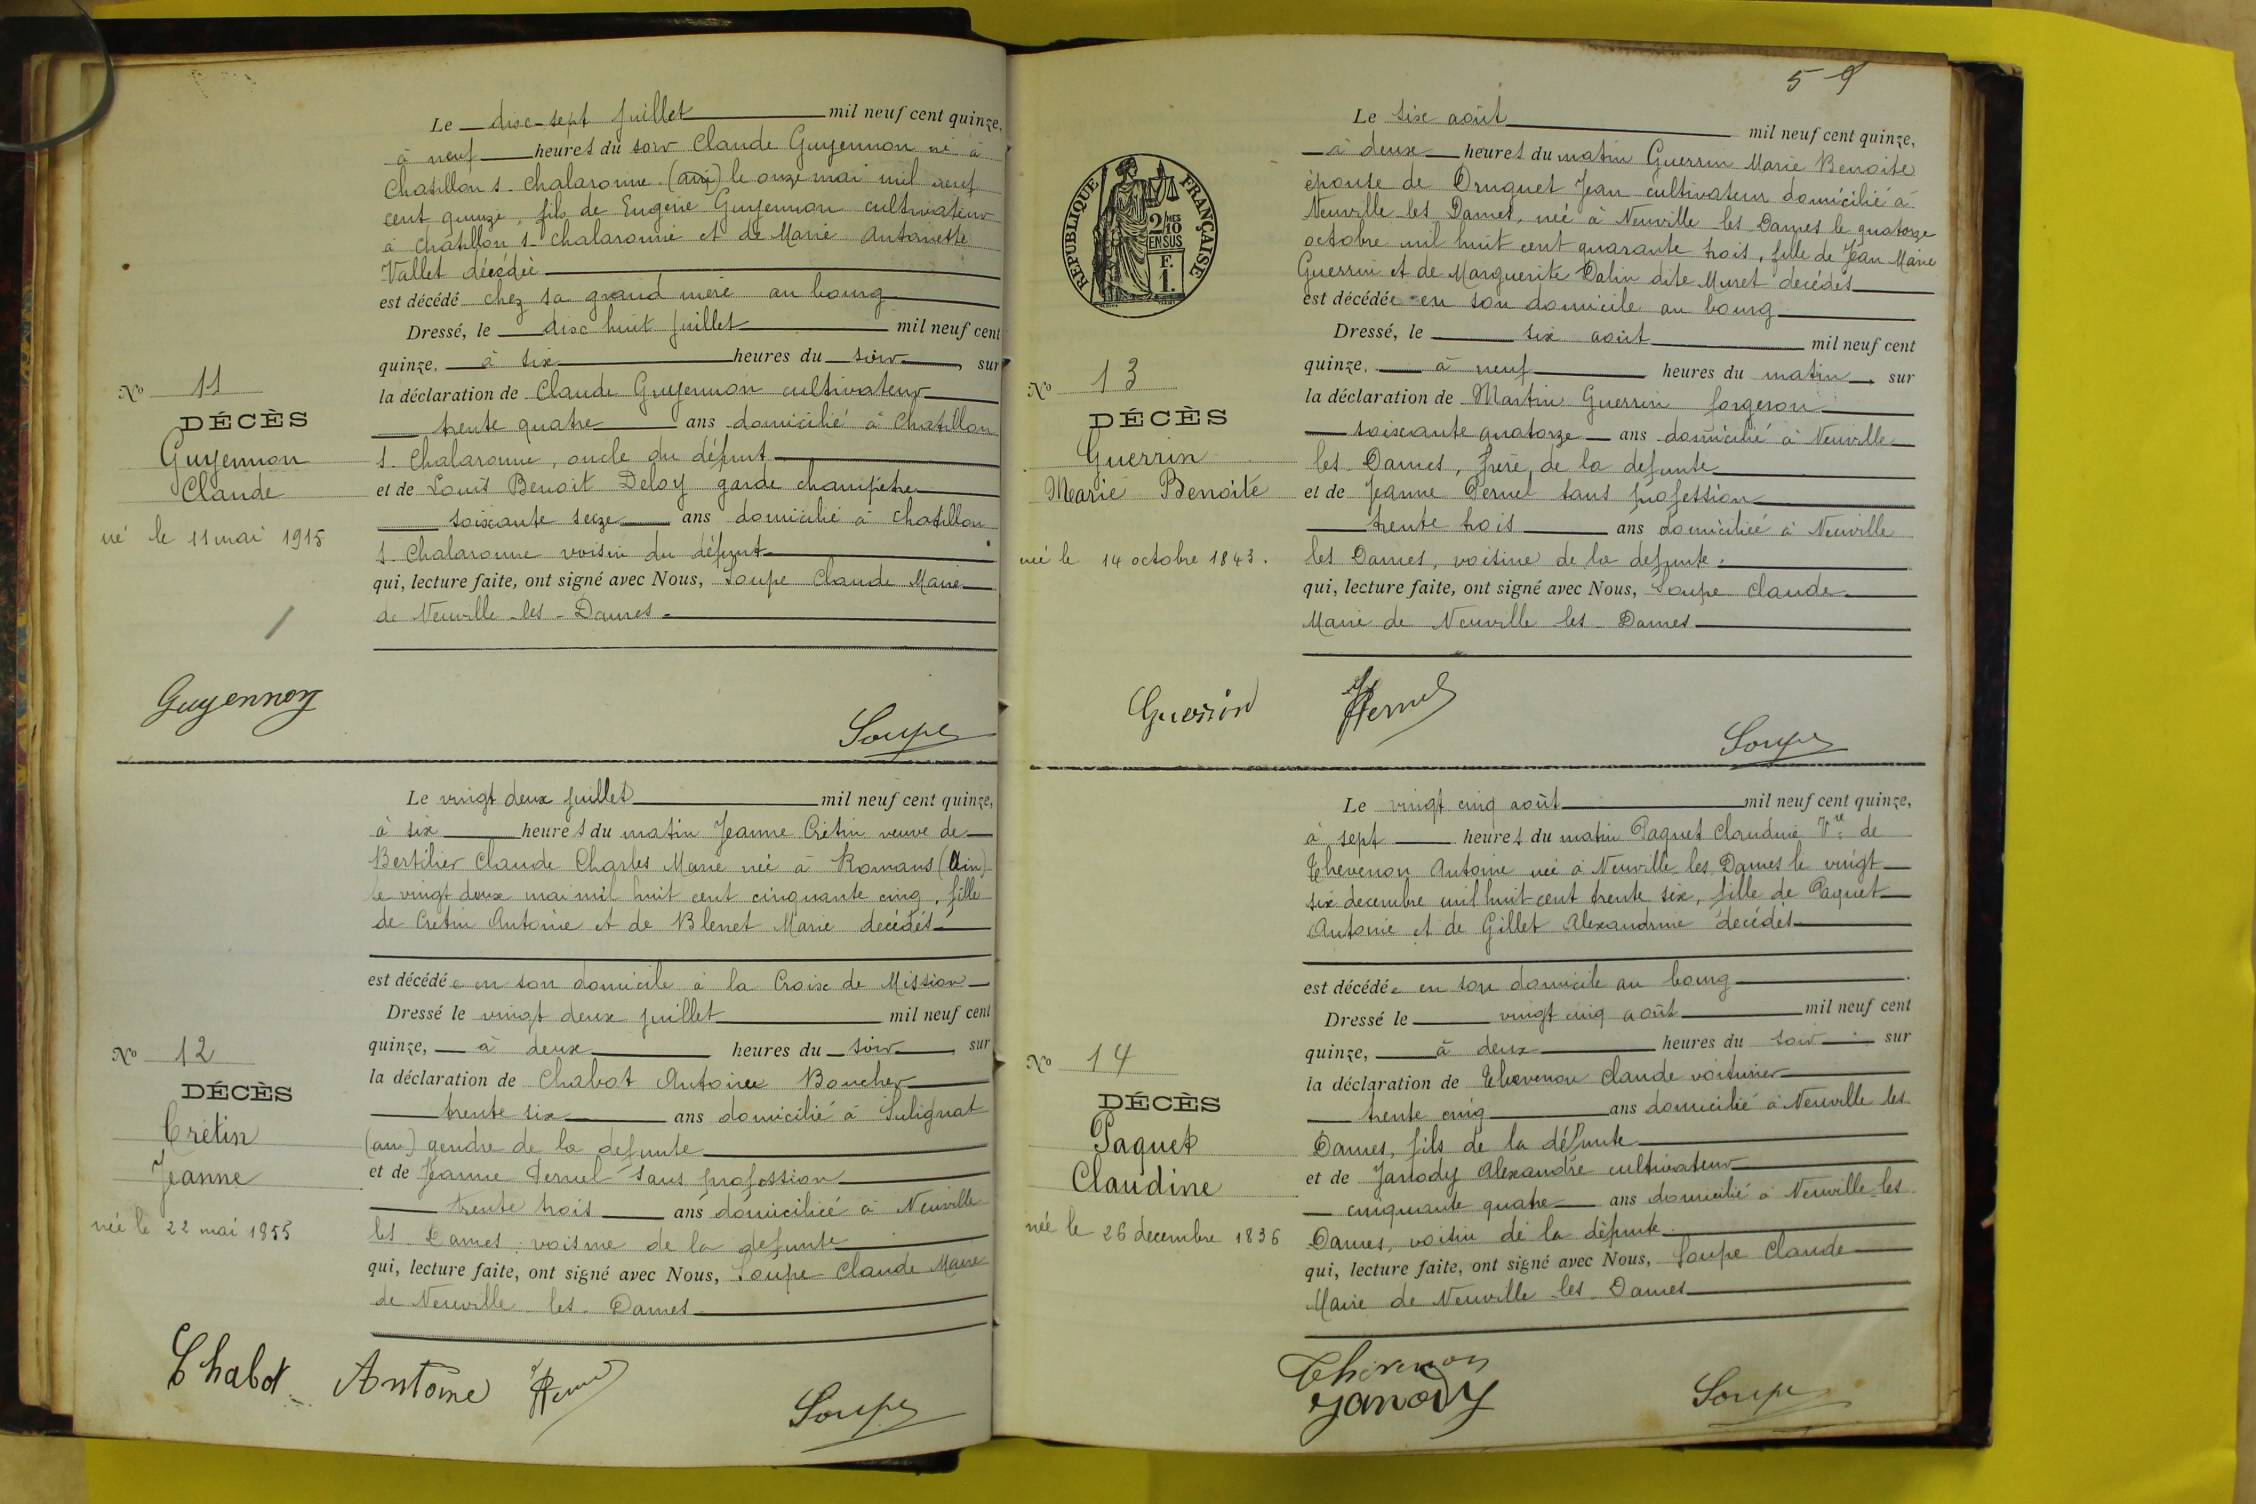 Le dix-sept juillet mil neuf cent quinze,
à neuf heures du soir Claude Guyennon né à
Chatillon s. Chalaronne (ain) le onze mai mil neuf
cent quinze, fils de Eugène Guyennon cultivateur
à Chatillon s. Chalaronne et de Marie Antoinette
Vallet décédée
est décédé chez sa grand mère au bourg
Dressé, le dix huit juillet mil neuf cent
quinze, à six heures du soir, sur
la déclaration de Claude Guyennon cultivateur
trente quatre ans domicilié à Chatillon
s. Chalaronne, oncle du défunt
et de Louis Benoit Deloy garde champêtre
soixante seize ans domicilié à Chatillon
s. Chalaronne voisin du défunt
qui, lecture faite, ont signé avec Nous, Soupe Claude Maire
de Neuville-les-Dames.
No 11
DÉCÈS
Guyennon
Claude
né le 11 mai 1915
Guyennon
Soupe
Le vingt deux juillet mil neuf cent quinze,
à six heures du matin Jeanne Crétin veuve de
Bertilier Claude Charles Marie née à Romans (Ain)
le vingt deux mai mil huit cent cinquante cinq, fille
de Cretin Antoine et de Blenet Marie decédés
est décédée en son domicile à la Croix de Mission
Dressé le vingt deux juillet mil neuf cent
quinze, à deux heures du soir, sur
la déclaration de Chabot Antoine Boucher
trente six ans domicilié à Sulignat
(ain) gendre de la defunte
et de Jeanne Pernel sans profession
trente trois ans domiciliée à Neuville
les Dames voisine de la defunte
qui, lecture faite, ont signé avec Nous, Soupe Claude Maire
de Neuville les Dames
No 12
DÉCÈS
Crétin
Jeanne
née le 22 mai 1955
Chabot Antoine Pernel
Soupe
59
RÉPUBLIQUE FRANÇAISE
2/10 MES
EN SUS
F.
1.
Le six août mil neuf cent quinze,
à deux heures du matin Guerrin Marie Benoite
épouse de Druguet Jean cultivateur domicilié à
Neuville-les Dames, née à Neuville les Dames le quatorze
octobre mil huit cent quarante trois, fille de Jean Marie
Guerrin et de Marguerite Dalin dite Muret decédés
est décédée en son domicile au bourg
Dressé, le six août mil neuf cent
quinze, à neuf heures du matin, sur
la déclaration de Martin Guerrin forgeron
soixante quatorze ans domicilié à Neuville
les Dames, frère de la defunte
et de Jeanne Pernel sans profession
trente trois ans domiciliée à Neuville
les Dames, voisine de la defunte.
qui, lecture faite, ont signé avec Nous, Soupe Claude
Maire de Neuville les Dames
No 13
DÉCÈS
Guerrin
Marie Benoite
née le 14 octobre 1843.
Guerrin Pernel
Soupe
Le vingt cinq août mil neuf cent quinze,
à sept heures du matin Paquet Claudine Vve de
Thevenon Antoine née à Neuville les Dames le vingt
six decembre mil huit cent trente six, fille de Paquet
Antoine et de Gillet Alexandrine décédés
est décédée en son domicile au bourg
Dressé le vingt cinq août mil neuf cent
quinze, à deux heures du soir sur
la déclaration de Thevenon Claude voiturier
trente cinq ans domicilié à Neuville les
Dames, fils de la défunte
et de Janody Alexandre cultivateur
cinquante quatre ans domicilié à Neuville les
Dames, voisin de la défunte
qui, lecture faite, ont signé avec Nous, Soupe Claude
Maire de Neuville les Dames
No 14
DÉCÈS
Paquet
Claudine
née le 26 decembre 1836
Thevenon
Janody
Soupe